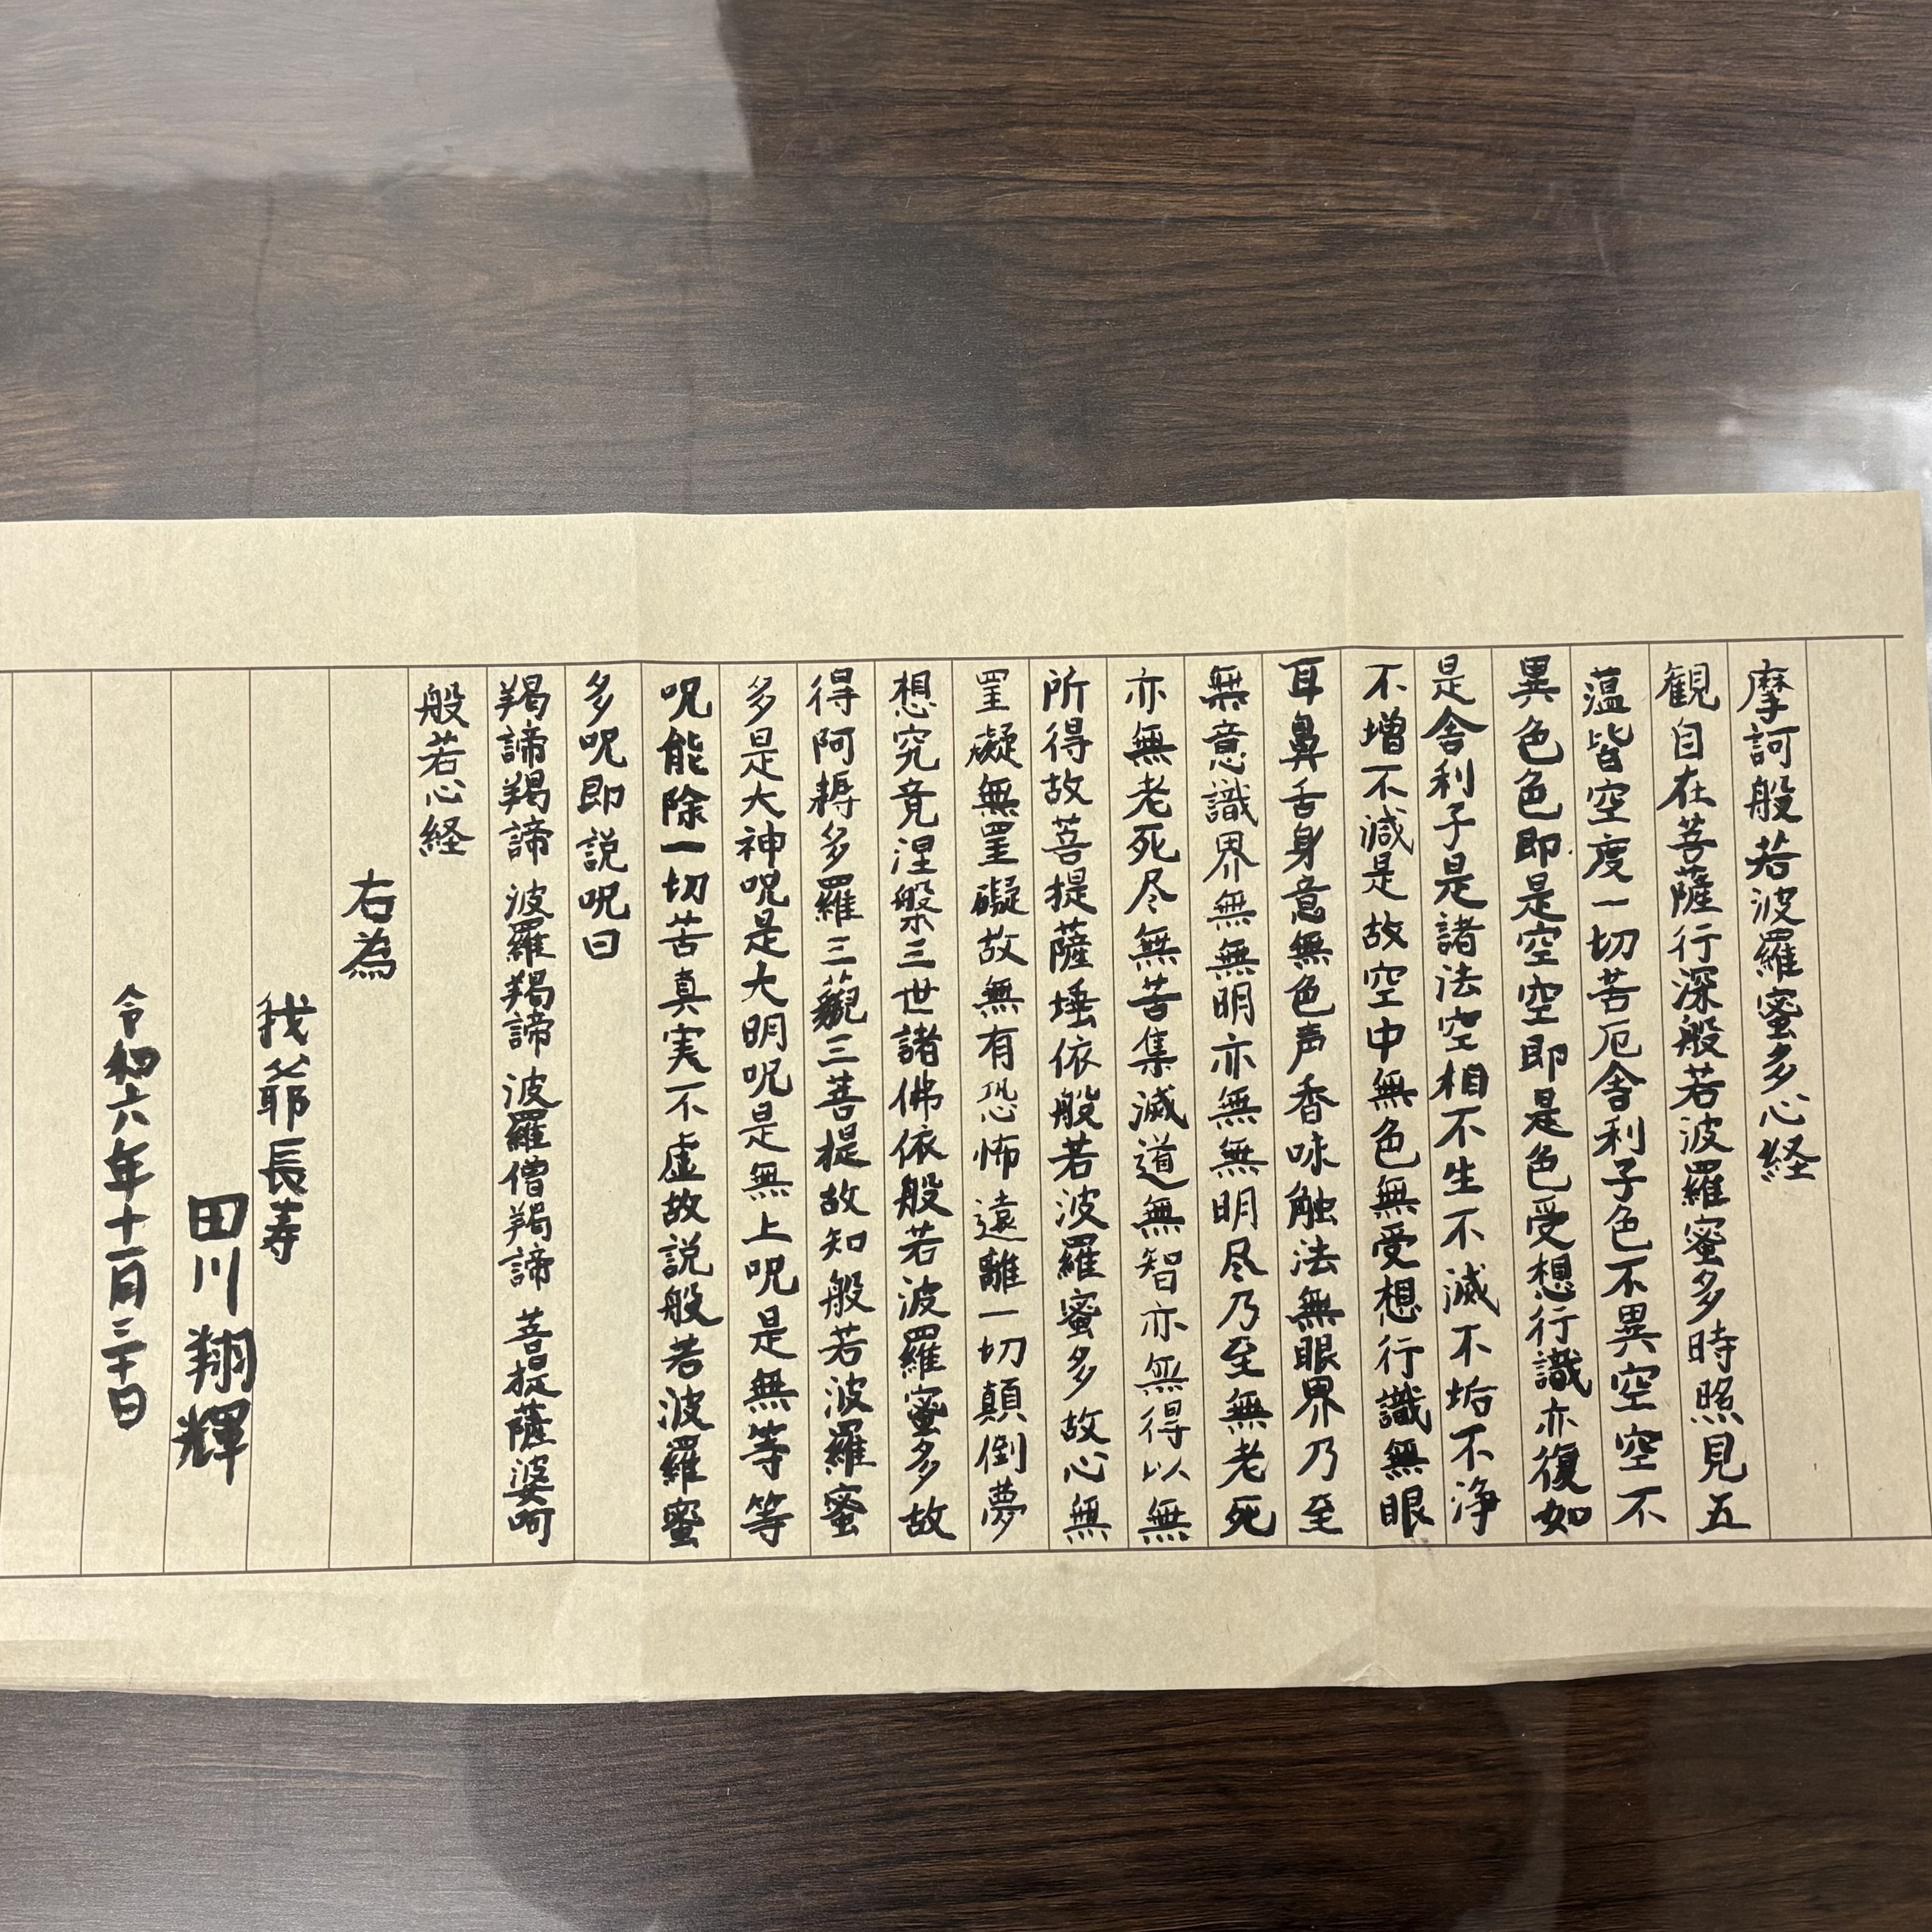 摩訶般若波羅蜜多心経
観自在菩薩行深般若波羅蜜多時照見五
薀皆空度一切苦厄舎利子色不異空空不
異色色即是空空即是色受想行識亦復如
是舎利子是諸法空相不生不滅不垢不浄
不増不減是故空中無色無受想行識無眼
耳鼻舌身意無色声香味触法無眼界乃至
無意識界無無明亦無無明尽乃至無老死
亦無老死尽無苦集滅道無智亦無得以無
所得故菩提薩埵依般若波羅蜜多故心無
罣礙無罣礙故無有恐怖遠離一切顛倒夢
想究竟涅槃三世諸佛依般若波羅蜜多故
得阿耨多羅三藐三菩提故知般若波羅蜜
多是大神呪是大明呪是無上呪是無等等
呪能除一切苦真実不虚故説般若波羅蜜
多呪即説呪曰
羯諦羯諦 波羅羯諦 波羅僧羯諦 菩提薩婆呵
般若心経
右為
我爺長寿
田川翔輝
令和六年十一月三十日